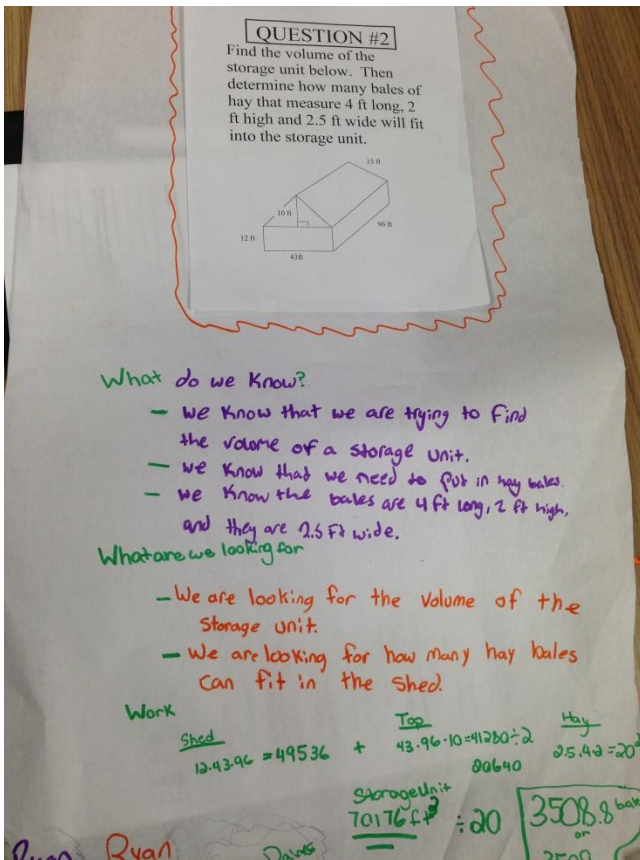 QUESTION #2
Find the volume of the
storage unit below. Then
determine how many bales of
hay that measure 4 ft long, 2
ft high and 2.5 ft wide will fit
into the storage unit.
15 ft
10 ft
12 ft
96 ft
43ft
What do we Know?
- we know that we are trying to find
the volome of a storage unit.
- we know that we need to put in hay bales.
- we know the bales are 4 ft long, 2 ft high,
and they are 2.5 Ft wide.
What are we looking for
- We are looking for the volume of the
Storage unit.
- We are looking for how many hay bales
can fit in the shed.
Work
Shed
12·43·96 = 49536 +
Top
43·96·10=41280÷2
20640
Hay
2.5·4·2=20
Storage Unit
70176 ft³ ÷20
3508.8 bale
or
Ryan
Ryan